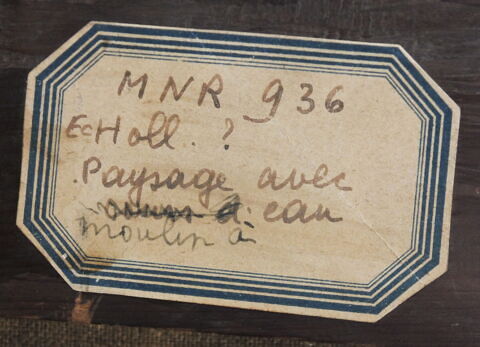 MNR 936
Ec Holl. ?
Paysage avec
à eau
moulin à